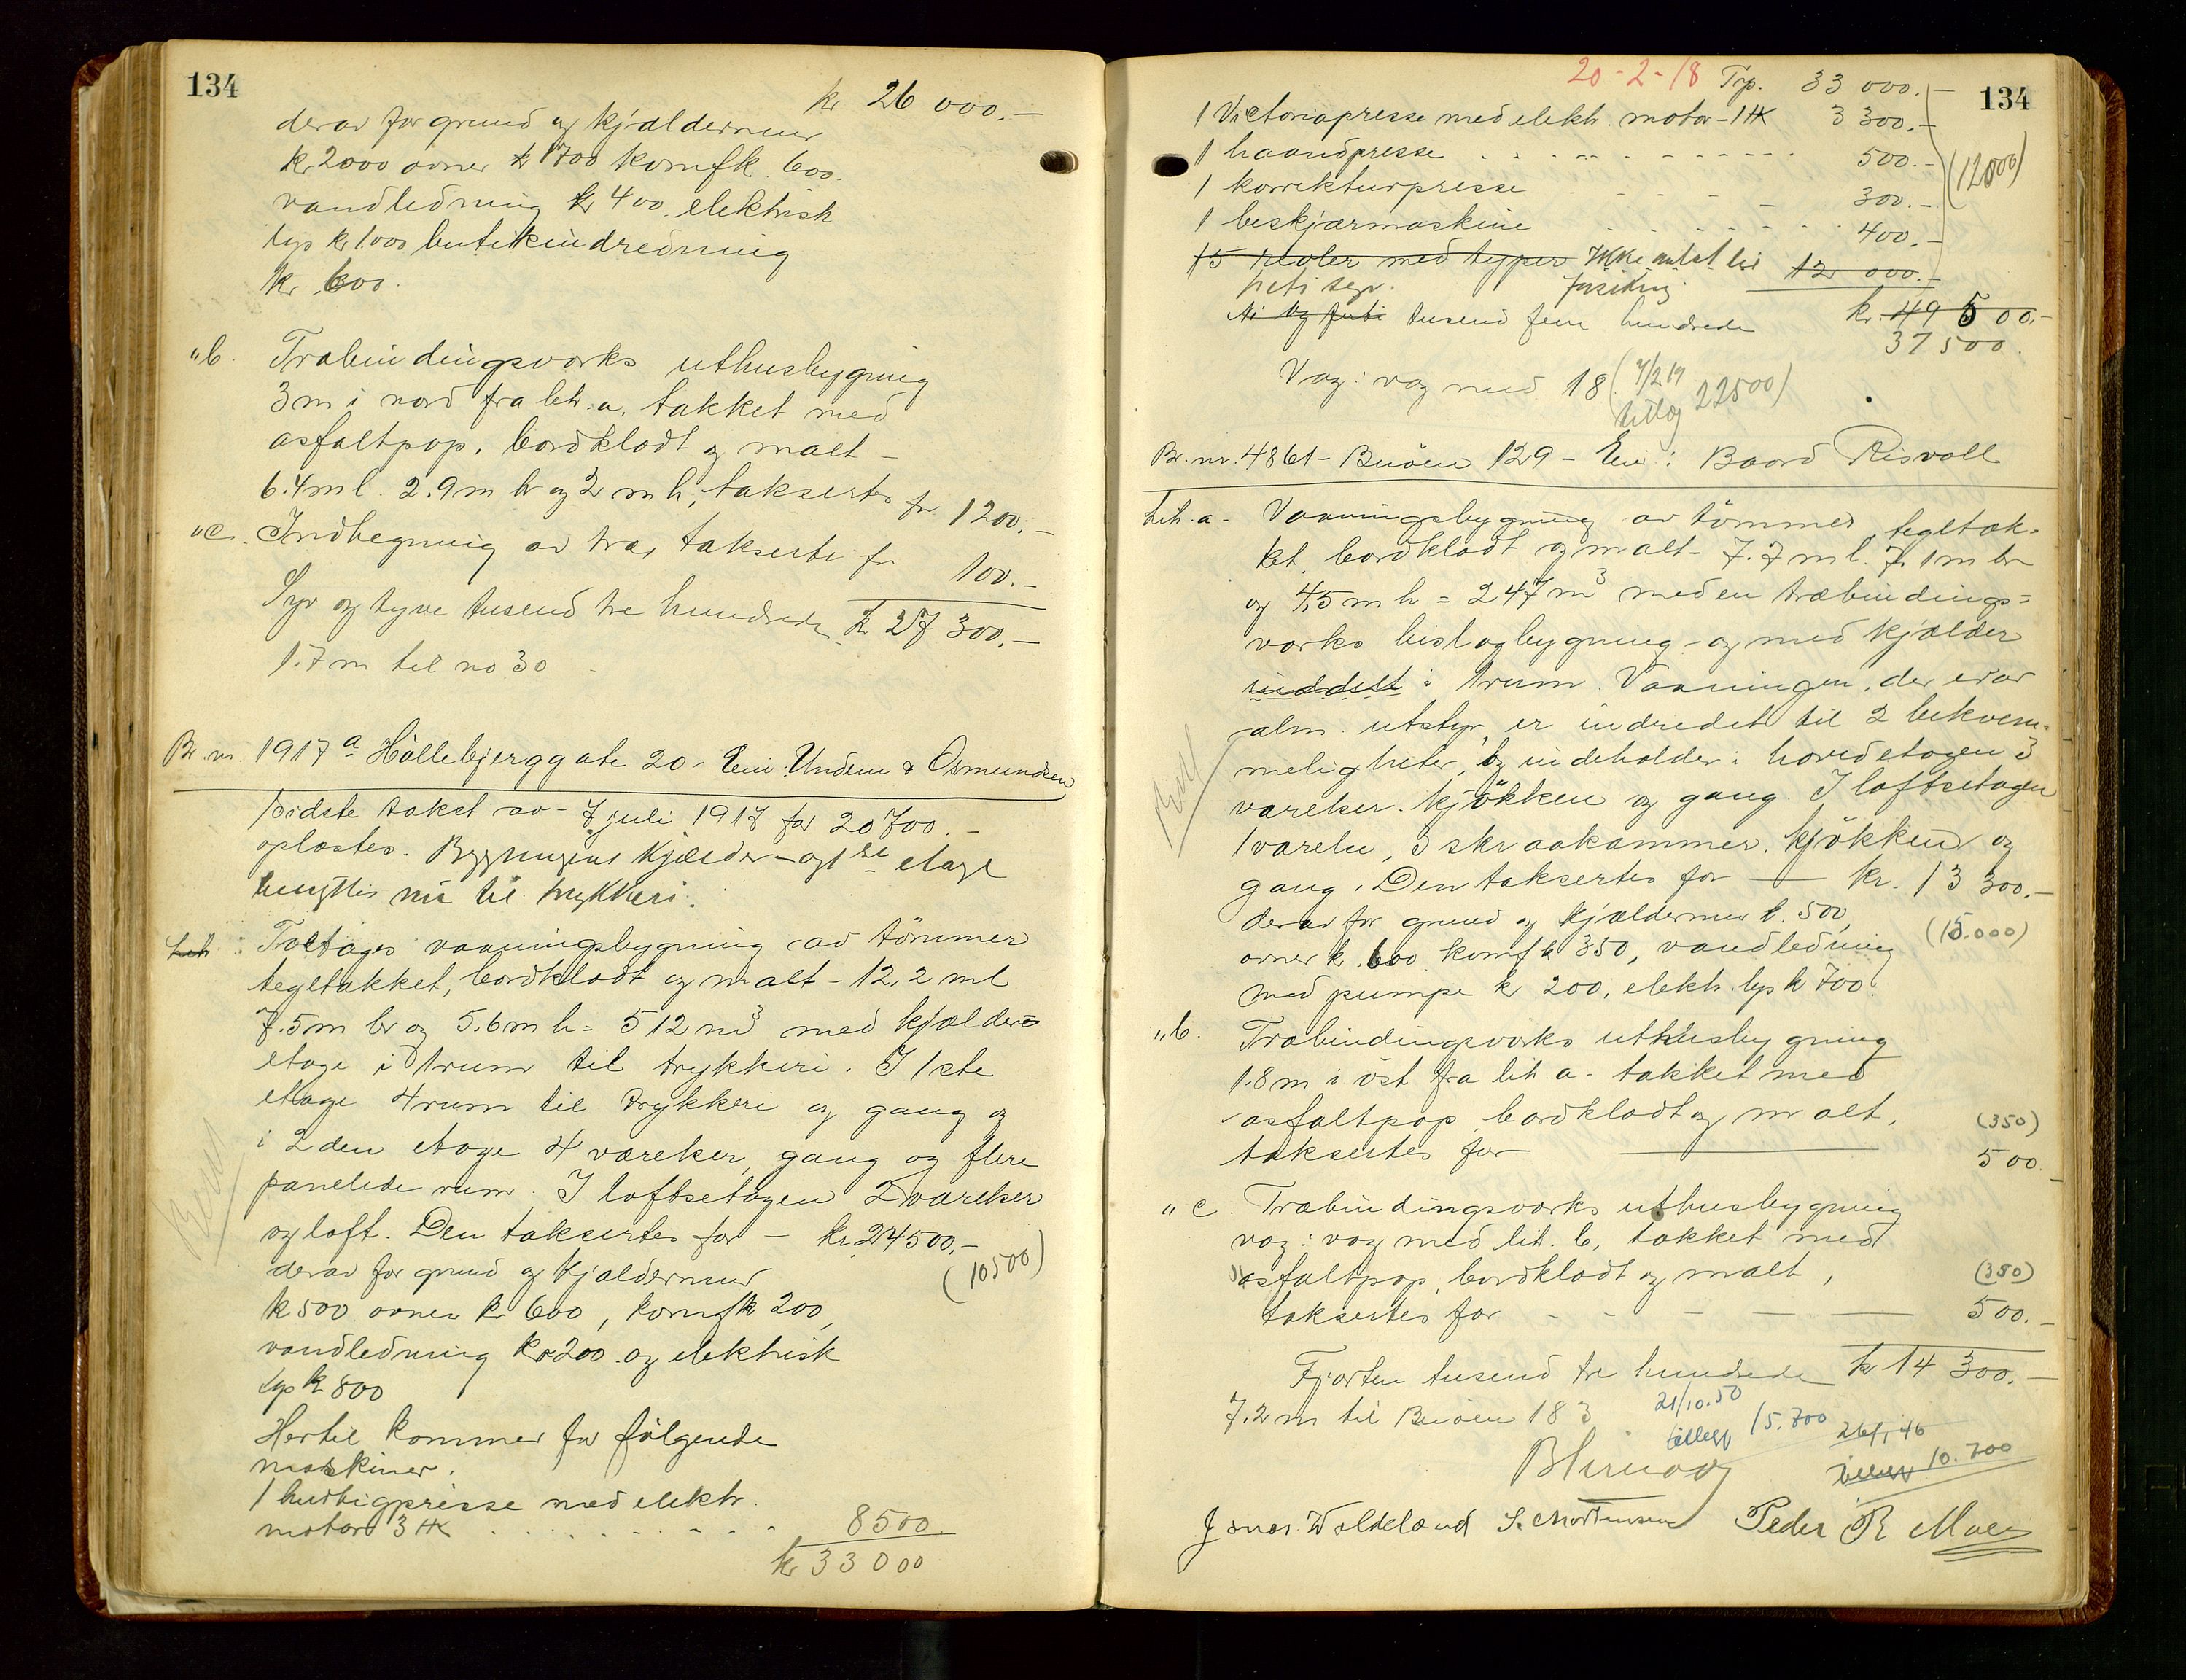 134
kr 26 000.-
derav for grund og kjældermur
kr 2000 ovner kr 1700 komf k. 600.
vandledning kr 400. elektrisk
lys kr 1000 butikindredning
kr 600.
"b. Træbindingsverks uthusbygning
3 m i nord fra lit. a. tækket med
asfaltpap, bordklædt og malt -
6.4 m l. 2.9 m br og 2 m h, takseres for 1200.-
"c. Indhegning av træ, takseres for 100.-
Syv og tyve tusend tre hundrede kr 27 300.-
1.7 m til no 30 -
Br. nr. 1917a Hållebjerggate 20 - Eier: Undem & Osmundsen
Sidste takst av 7 juli 1917 for 20700.-
oplæstes. Bygningens kjælder- og 1ste etage
benyttes nu til trykkeri.
Lit : Toetages vaaningsbygning av tømmer
tegltækket, bordklædt og malt - 12,2 m l
7.5 m br og 5.6 m h = 512 m3 med kjælder=
etage i 1 rum til trykkeri. I 1ste
etage 4 rum til trykkeri og gang og
i 2den etage 4 værelser, gang og flere
panelede rum. I loftsetagen 2 værelser
og loft. Den takseres for - kr. 24500.-
(10500)
derav for grund og kjældermur
k 500 ovner kr 600, komf k 200,
vandledning kr 200. og elektrisk
lys kr 800
Hertil kommer for følgende
maskiner.
1 hurtigpresse med elektr.
motor 3 HK . . . . . . . . 8500.
kr 33000
134
20-2-18 Trp. 33 000.-
1 Victoriapresse med elektr. motor - 1 HK 3 300.-
1 haandpresse . . . . . . 500.-
1 korrekturpresse - - - - 300.-
(12000)
1 beskjærmaskine . . . . . . 400.-
15 reoler med typer Ikke antat til 12 000.-
forsikring.
Ni og firti tusend fem hundrede kr. 49 500.-
37 500.
Væg i væg med 18 (7/2 19
tillæg 22500)
Br. nr. 4861 - Buöen 129 - Eier: Baard Risvoll
Lit. a - Vaaningsbygning av tømmer, tegltæk-
ket, bordklædt og malt - 7.7 m l. 7.1 m br
og 4,5 m h = 247 m3 med en træbindings=
verks bislagbygning - og med kjælder
inddelt i 1 rum. Vaaningen, der er av
alm. utstyr, er indredet til 2 bekvem=
meligheter, og indeholder i hovedetagen 3
værelser, kjøkken og gang. I loftsetagen
1 værelse, 3 skraakammer, kjøkken og
gang. Den takseres for — kr. 13 300.-
derav for grund og kjældermur k. 500,
(15.000)
ovner k. 600 komf k 350, vandledning
med pumpe kr 200, elektr. lys kr 700.
"b. Træbindingsverks uthusbygning
1.8 m i øst fra lit. a - tækket med
asfaltpap bordklædt og malt,
(350)
takseres for — 500.
"c. Træbindingsverks uthusbygning
væg i væg med lit. b, tækket med
asfaltpap, bordklædt og malt,
(350)
takseres for - - - — 500.-
Fjorten tusend tre hundrede kr 14 300.-
7.2 m til Buöen 183
21/10.50
tillegg 15.700
26/1 46
tillegg 10.700
Jonas Waldeland S. Mortensen Peder R. Moen